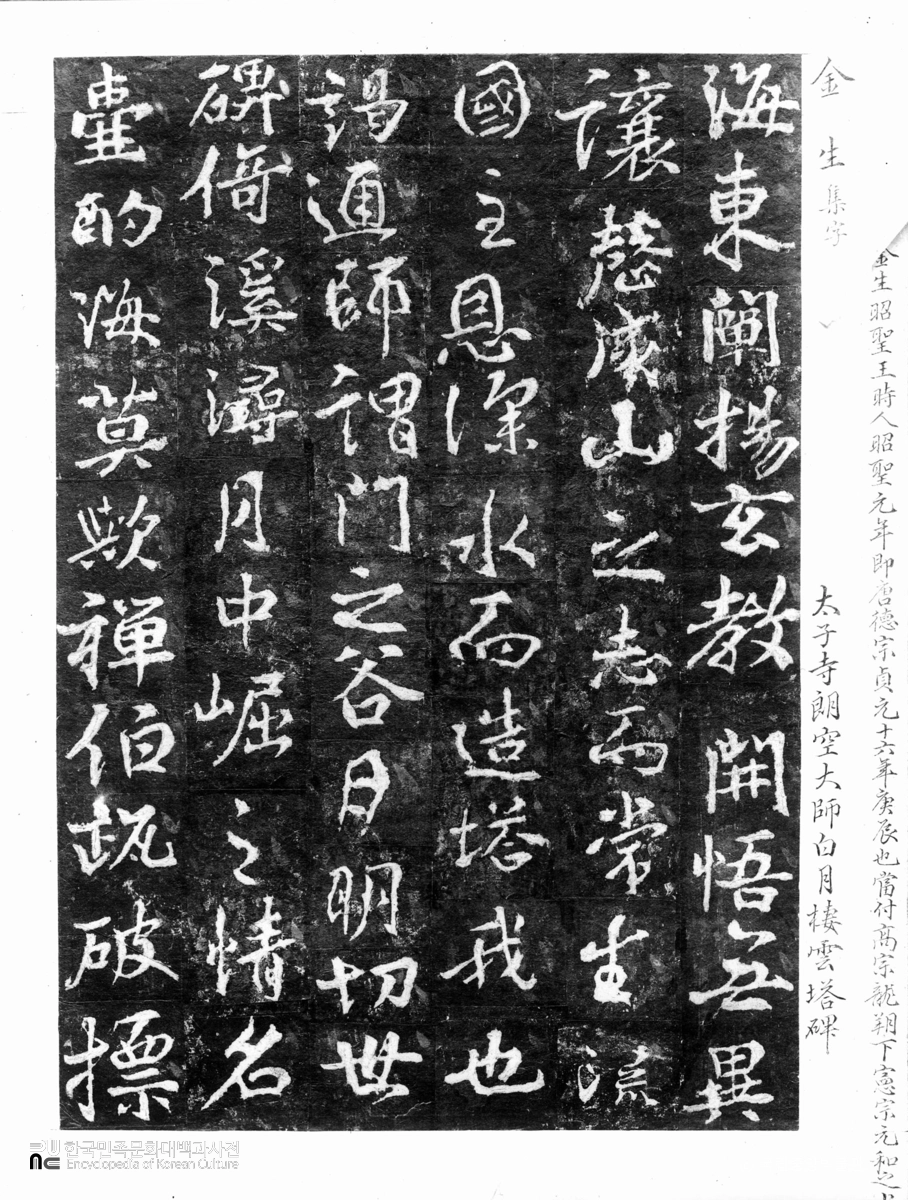 金生昭聖王時人昭聖元年即唐德宗貞元十六年庚辰也當付高宗龍朔下憲宗元和之
金生集字
太子寺朗空大師白月棲雲塔碑
海東闡揚玄教開悟無異
讓慈威山之志而常生流
國主恩深水而造塔我也
謁通師謂門之谷月明切世
碑倚溪潯月中崛之情名
臺酌海莫歟禪伯哉破摽
한국민족문화대백과사전
Encyclopedia of Korean Culture